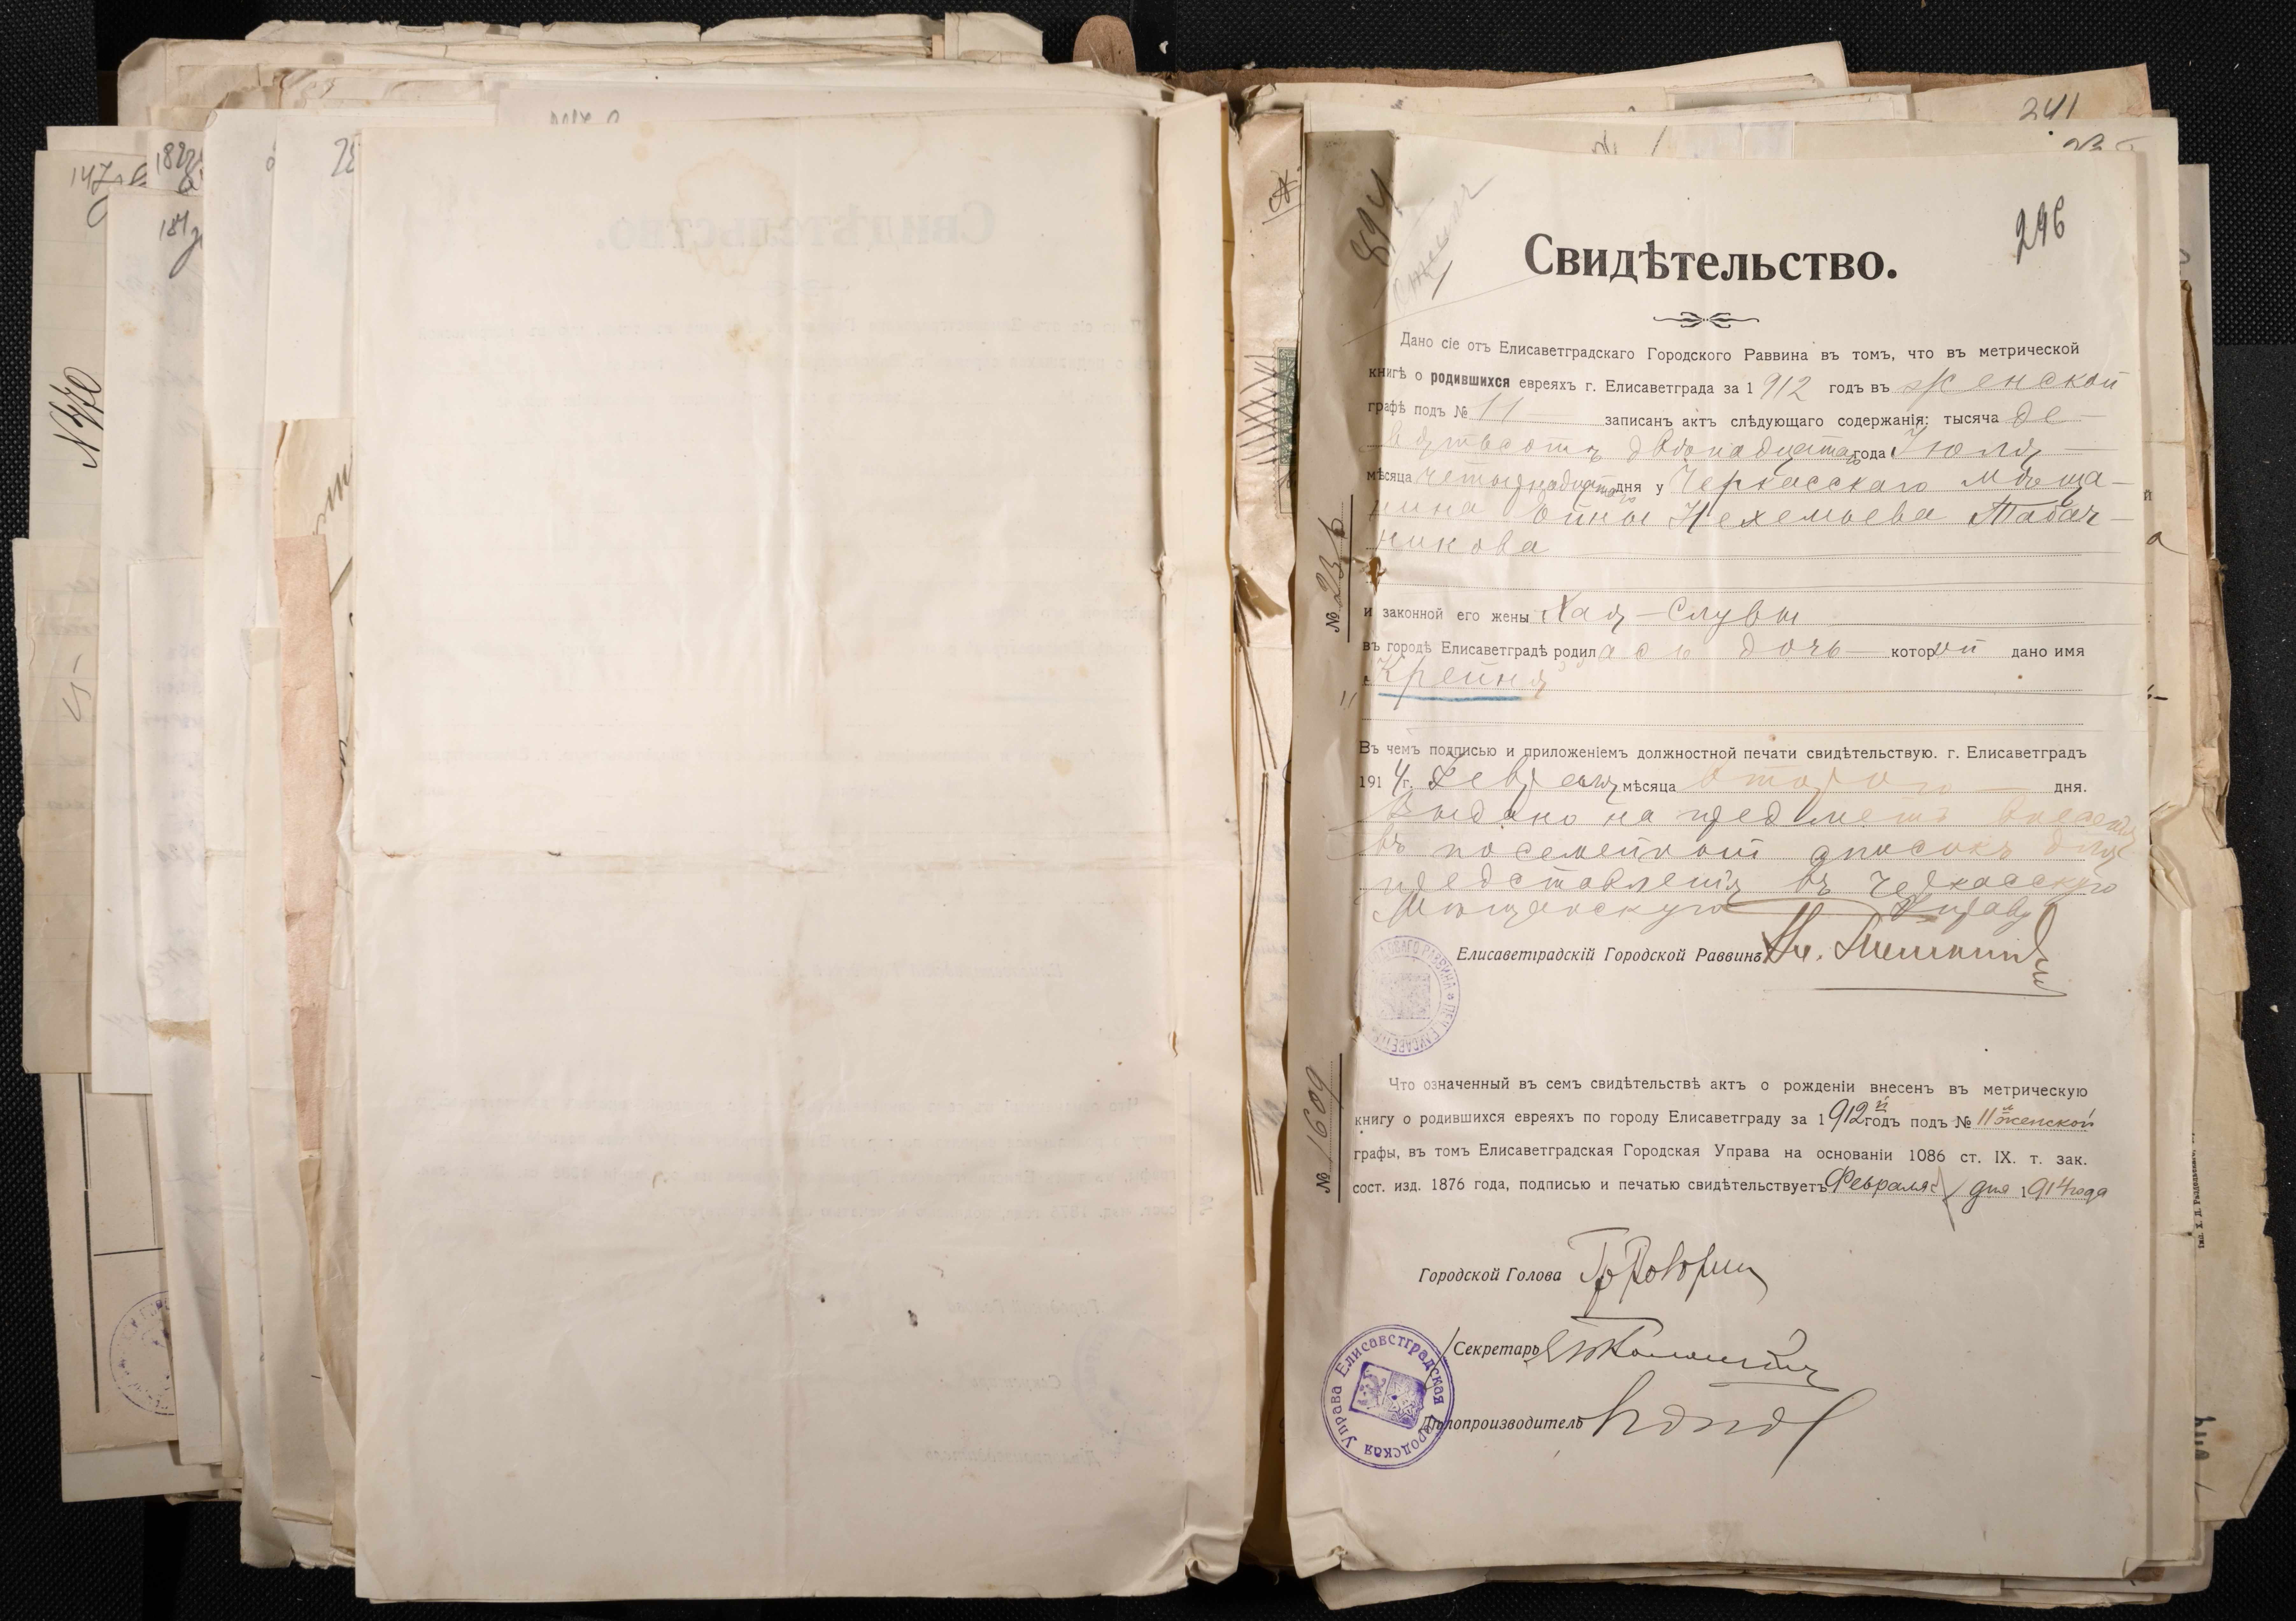 147
182
181
N 770
241
894
296
Свидѣтельство.
Дано сіе отъ Елисаветградскаго Городского Раввина въ томъ, что въ метрической
книгѣ о родившихся евреяхъ г. Елисаветграда за 1912 годъ въ Женской
графѣ подъ № 11 записанъ актъ слѣдующаго содержанія: тысяча де-
вятьсотъ двѣнадцатаго года Іюля
мѣсяца четырнадцатаго дня у Черкасскаго мѣща-
нина Ойны Нехемьева Табач-
никова
№ 236
и законной его жены Хая-Слувы
въ городѣ Елисаветградѣ родилась дочь которой дано имя
"Крейня"
Въ чемъ подписью и приложеніемъ должностной печати свидѣтельствую. г. Елисаветградъ
1914 г. Февраля мѣсяца второго дня.
Выдано на предметъ внесенія
въ посемейный списокъ для
представленія въ Черкасскую
Мѣщанскую Управу
Елисаветградскій Городской Раввинъ
Что означенный въ семъ свидѣтельствѣ актъ о рожденіи внесенъ въ метрическую
книгу о родившихся евреяхъ по городу Елисаветграду за 1912й годъ подъ № 11 женской
графы, въ томъ Елисаветградская Городская Управа на основаніи 1086 ст. IX. т. зак.
сост. изд. 1876 года, подписью и печатью свидѣтельствуетъ Февраля дня 1914 года
№ 1609
Городской Голова
Секретарь
Дѣлопроизводитель
Елисаветградская Городская Управа